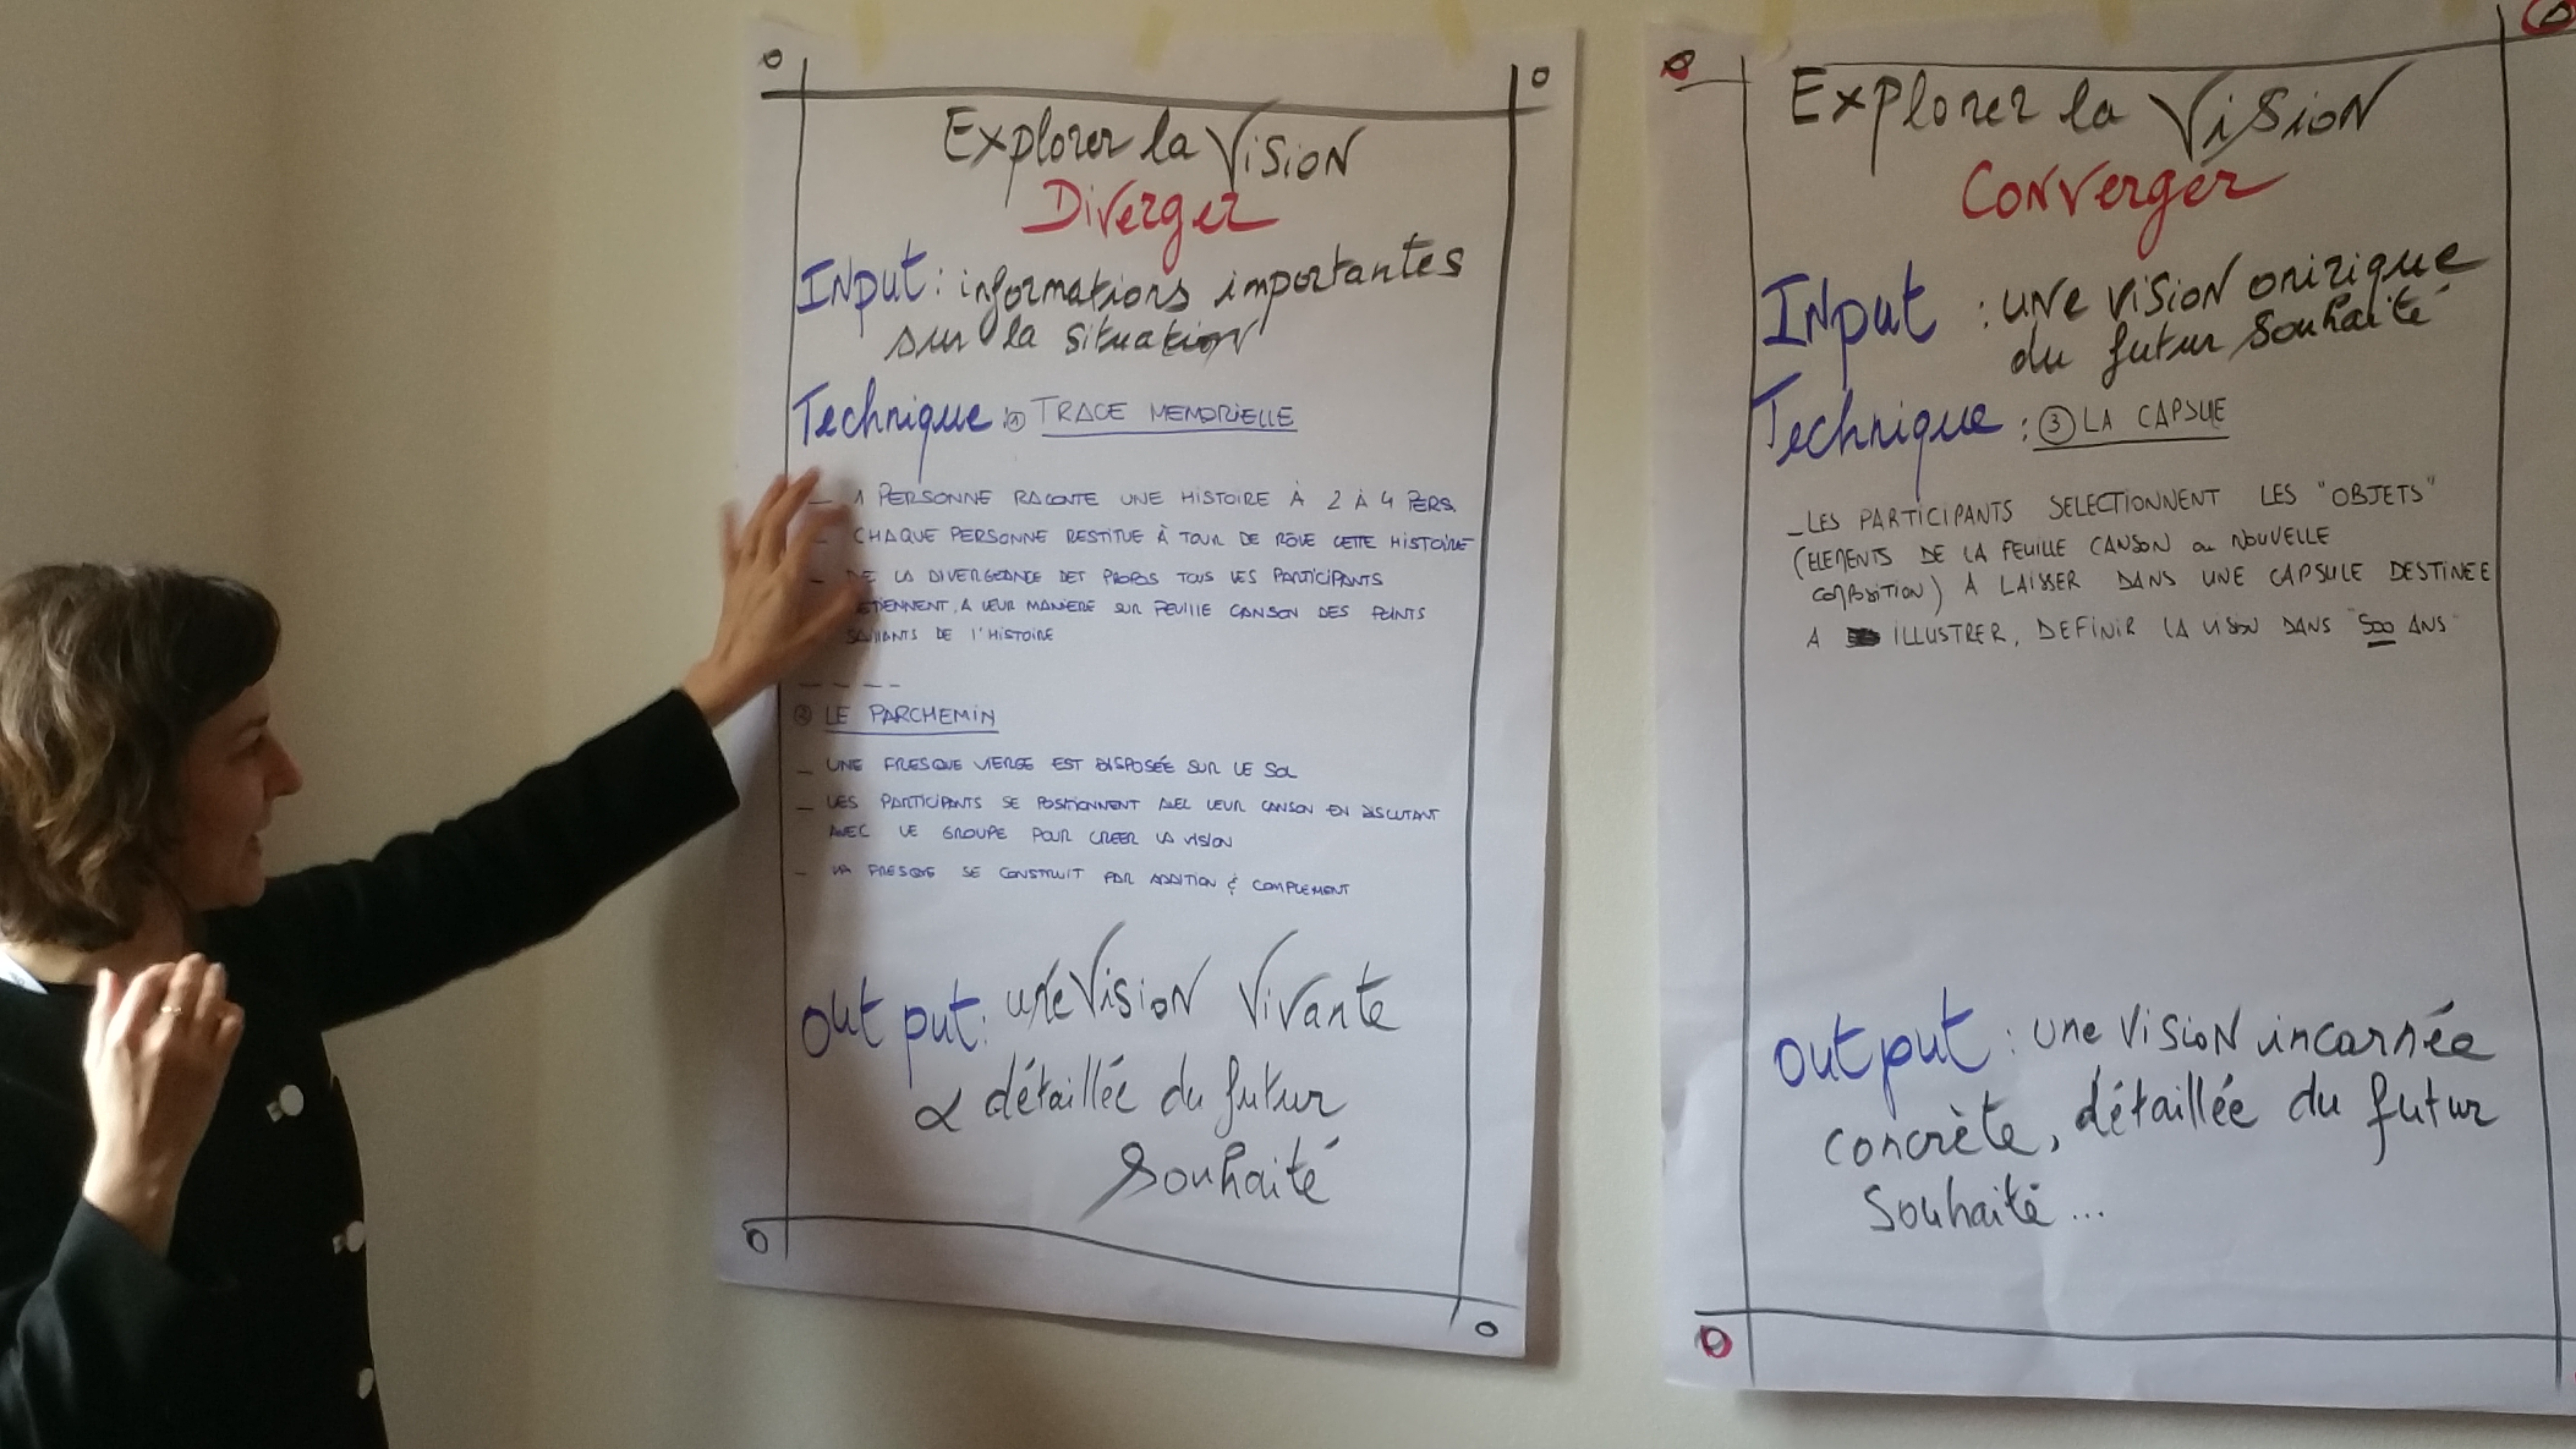 Explorer la Vision
Diverger
Input : informations importantes
sur la situation
Technique : ① TRACE MEMORIELLE
_ 1 PERSONNE RACONTE UNE HISTOIRE À 2 À 4 PERS.
_ CHAQUE PERSONNE RESTITUE À TOUR DE RÔLE CETTE HISTOIRE
_ DE LA DIVERGEANCE DET PROPOS TOUS LES PARTICIPANTS
A LEUR MANIERE SUR FEUILLE CANSON DES POINTS
SAILLANTS DE L'HISTOIRE
_ _ _ _
② LE PARCHEMIN
_ UNE FRESQUE VIERGE EST DISPOSÉE SUR LE SOL
_ LES PARTICIPANTS SE POSITIONNENT AVEC LEUR CANSON EN DISCUTANT
AVEC LE GROUPE POUR CREER LA VISION
_ LA FRESQUE SE CONSTRUIT PAR ADDITION & COMPLEMENT
Output : une Vision Vivante
& détaillée du futur
Souhaité
Explorer la Vision
Converger
Input : une vision onirique
du futur Souhaité
Technique : ③ LA CAPSULE
_ LES PARTICIPANTS SELECTIONNENT LES "OBJETS"
(ELEMENTS DE LA FEUILLE CANSON ou NOUVELLE
COMPOSITION) A LAISSER DANS UNE CAPSULE DESTINEE
A ILLUSTRER, DEFINIR LA VISION DANS "500 ANS"
Output : une Vision incarnée
concrète, détaillée du futur
Souhaité ...